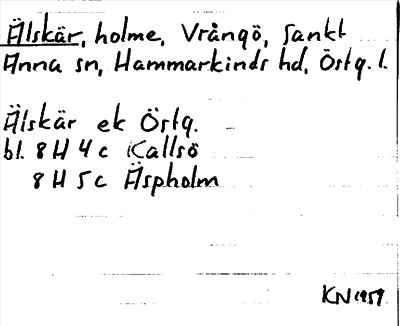 Älskär, holme, Vrångö, Sankt
Anna sn, Hammarkinds hd, Östg. l.
Älskär ek Östg.
bl. 8 H 4 c Kallsö
8 H 5 c Äspholm
KN 1959